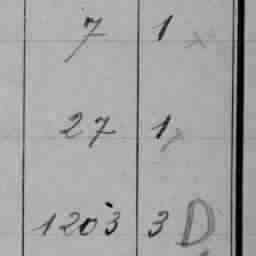 7 1 x
27 1 x
1203 3 D